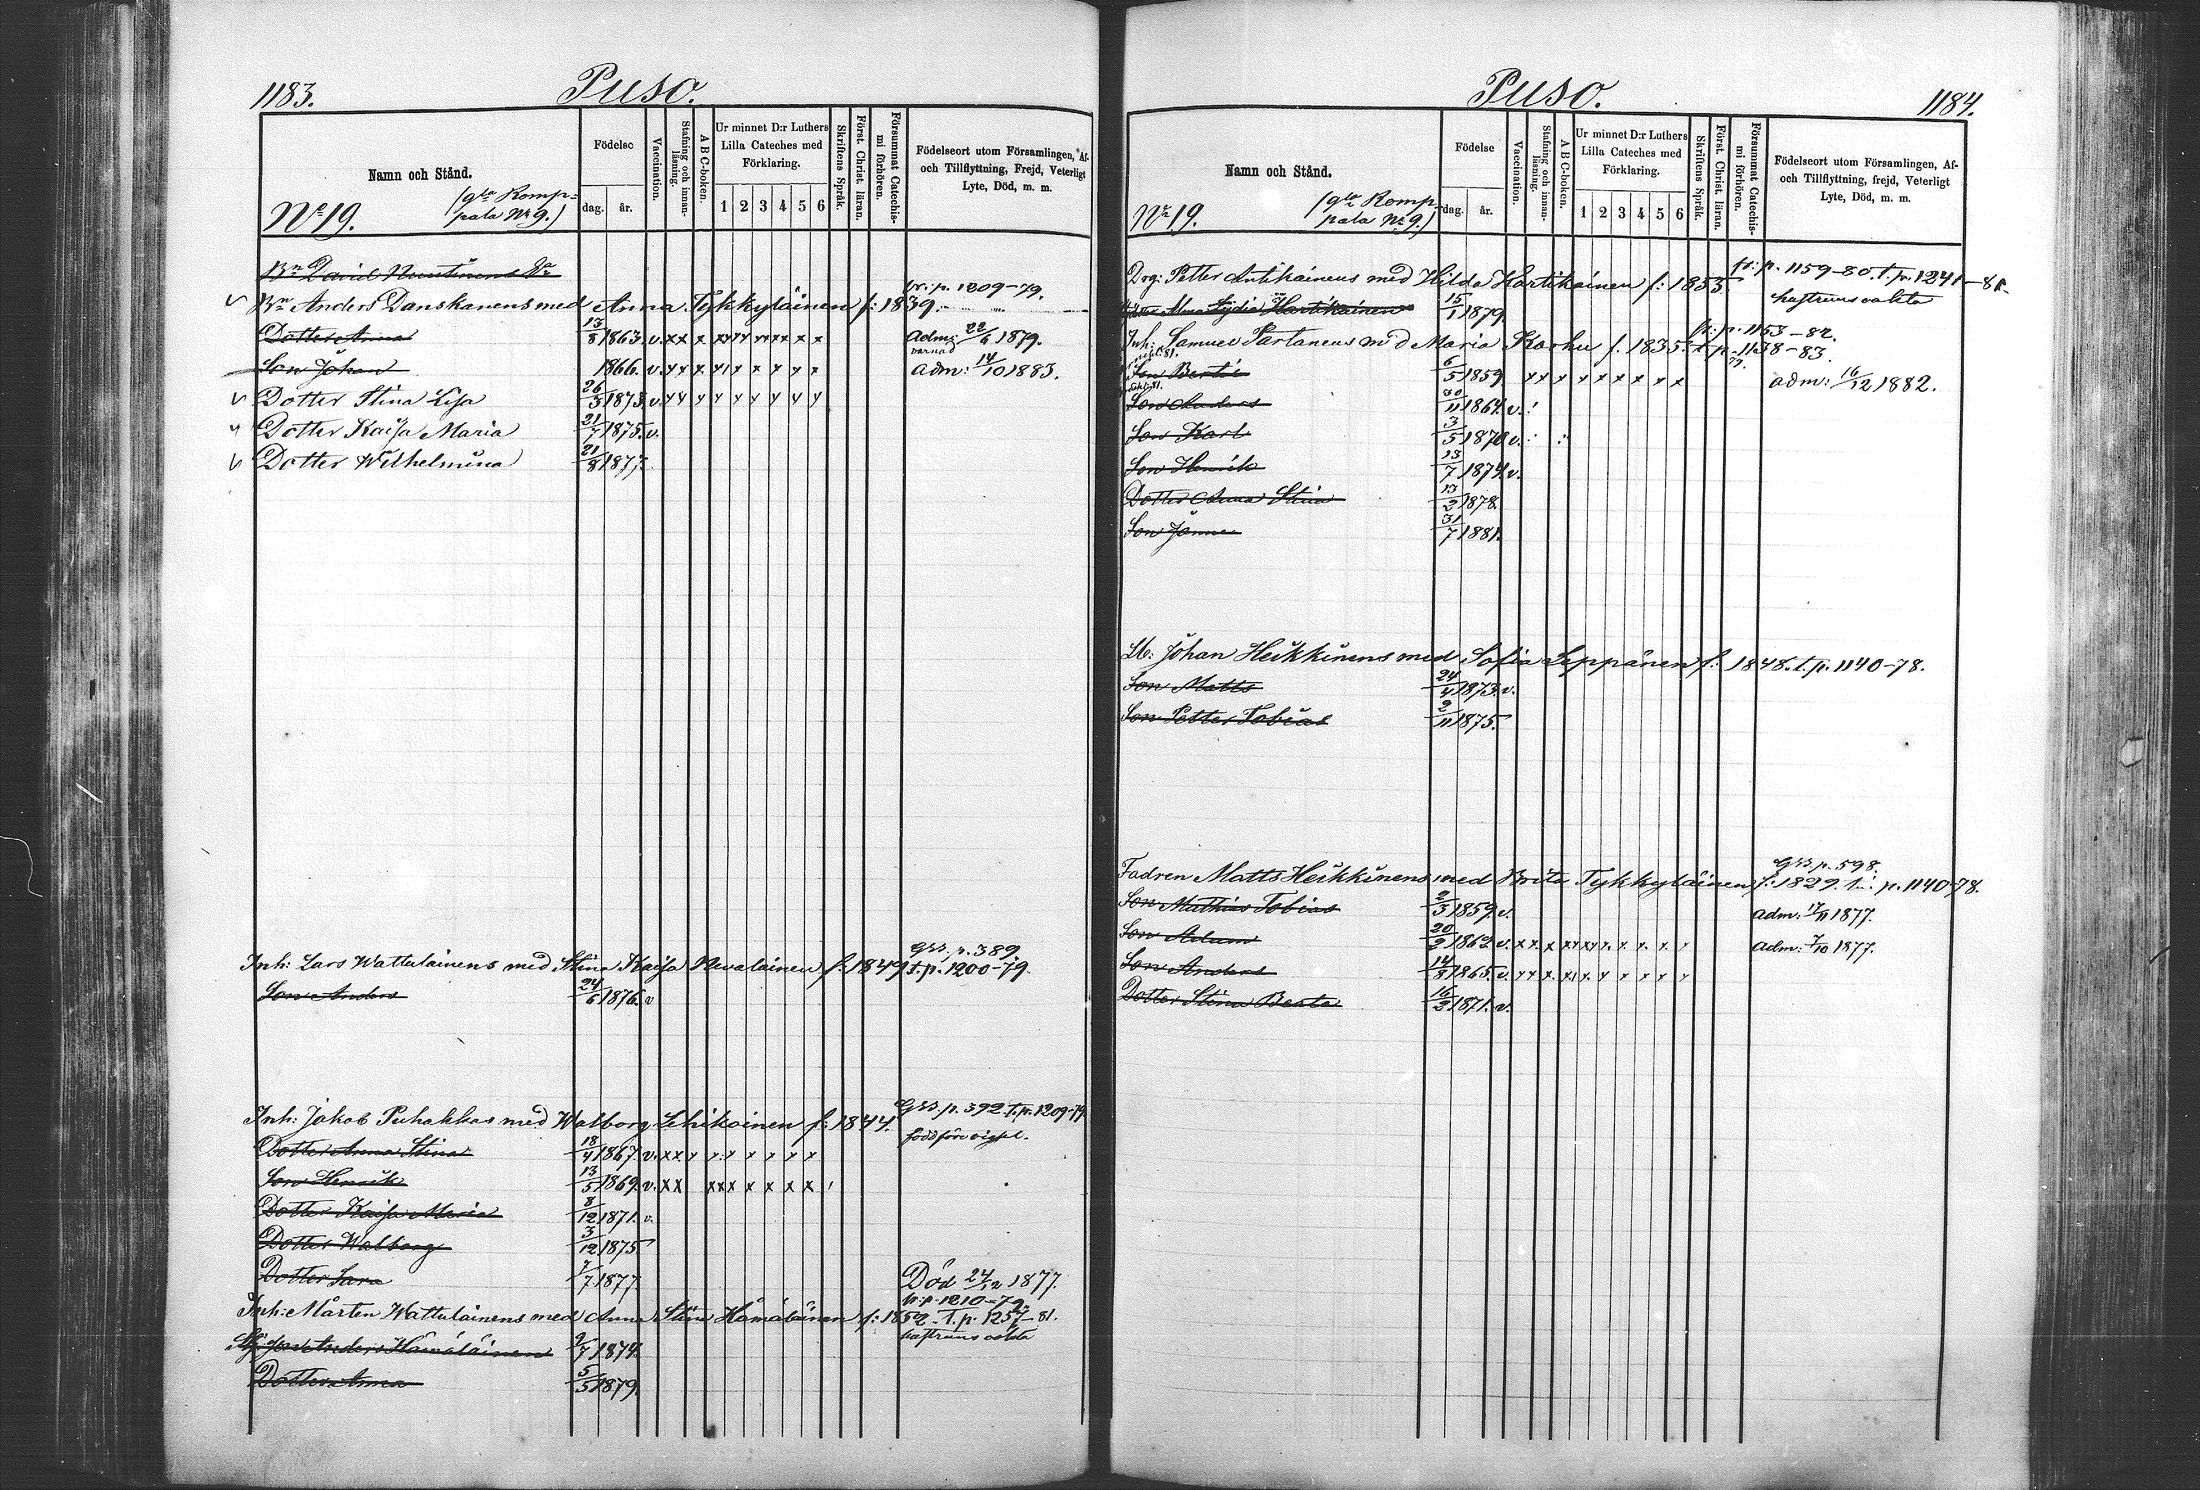 1183.
Puso.
Namn och Stånd.
Födelse
dag. år.
Vaccination.
Stafning och innanläsning.
A B C-boken.
Ur minnet D:r Luthers Lilla Cateches med Förklaring.
1 2 3 4 5 6
Skriftens Språk.
Först. Christ. läran.
Försummat Catechismi förhören.
Födelseort utom Församlingen, Af- och Tillflyttning, Frejd, Veterligt Lyte, Död, m. m.
No 19. (gla Komppala No 9.)
Bn David
fr. p. 1209-79.
Bn Anders Danskanens med Anna Tykkyläinen f: 1839.
Dotter Anna 13/8 1863. v. x x x x x x x x x x adm: 22/6 1879.
Son Johan 1866. v. x x x x x x x x x adm: 14/10 1883.
Dotter Stina Lisa 26/3 1873. v. x x x x x x x x x
Dotter Kaisa Maria 21/7 1875. v.
Dotter Wilhelmina 21/8 1877.
GB p. 389.
Inh: Lars Wattulainens med Stina Kaisa Nevalainen f: 1849 t. p. 1200-79.
Son Anders 24/6 1876. v
GB p. 392. t. p. 1209-79
Inh: Jakob Puhakkas med Walborg Lehikoinen f: 1844.
Dotter Anna Stina 18/4 1867. v. x x x x x x x x x född före vigsel.
Son Henrik 13/5 1869. v. x x x x x x x x x
Dotter Kaisa Maria 8/12 1871. v.
Dotter Walborg 3/12 1875
Dotter Sara 7/7 1877. Död 24/12 1877.
fr. p. 1210-79.
Inh: Mårten Wattulainens med Anna Stina Hämäläinen f: 1852. t. p. 1257-81.
son Anders Hämäläinen 9/7 1874.
Dotter Anna 5/5 1879.
1184.
Puso.
Namn och Stånd.
Födelse
dag. år.
Vaccination.
Stafning och innanläsning.
A B C-boken.
Ur minnet D:r Luthers Lilla Cateches med Förklaring.
1 2 3 4 5 6
Skriftens Språk.
Först. Christ. läran.
Försummat Catechismi förhören.
Födelseort utom Församlingen, Af- och Tillflyttning, frejd, Veterligt Lyte, Död, m. m.
No 19. (gla Komppala No 9.)
Drg: Petter Antikainens med Hilda Hartikainen f: 1853 fr: p. 1159-80. t. p. 1241-81.
Dotter Alma Lydia Hartikainen 15/1 1879.
fr: p. 1153-82.
Inh: Samuel Partanens med Maria Karhu f. 1835. t. p. 1138-83.
Son Bertil 6/5 1859. x x x x x x x x x adm: 16/12 1882.
Son Anders 30/11 1864. v.
Son Karl 3/5 1870. v.
Son Henrik 13/7 1874. v.
Dotter Anna Stina 13/2 1878.
Son Janne 31/7 1881.
Johan Heikkinens med Sofia Leppänen f: 1848. t. p. 1140-78.
Son Matts 24/4 1873. v.
Son Petter Tobias 2/11 1875.
GB p. 598.
Fadren Matts Heikkinens med Brita Tykkyläinen f: 1829. t. p. 1140-78.
Son Mathias Tobias 2/3 1859. v. adm: 17/11 1877.
Son Adam 20/2 1862. v. x x x x x x x x x adm: 7/10 1877.
Son Anders 14/8 1865. v. x x x x x x x x x
Dotter Stina Beata 16/2 1871. v.